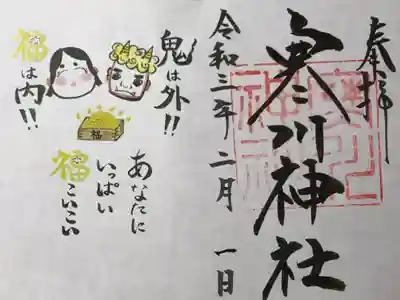 奉拝
寒川神社
令和三年二月一日
鬼は外!!
福は内!!
福
あなたに
いっぱい
福こいこい